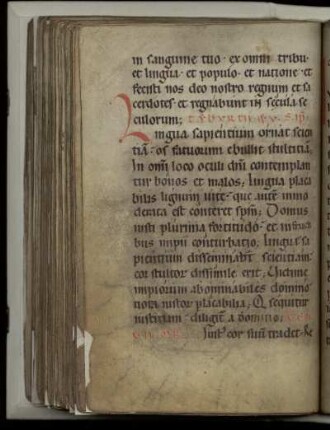 in sanguine tuo · ex omni tribu ·
et lingua · et populo · et natione · et
fecisti nos deo nostro regnum et sa
cerdotes · et regnabunt in secula se
culorum;
Lingua sapientium ornat scien
tiā · os fatuorum ebullit stultitiā
In omī loco oculi dnī contemplan
tur bonos et malos; lingua placa
bilis lignum uite · que autē immo
derata est conteret spm̄; Domus
iusti plurima fortitudo · et in fructi
bus impii cōturbatio; lingua sa
pientium disseminabt scientiam ·
cor stultor dissimile erit; Uictime
impiorum abominabiles domino
uota iustor placabilia; Q sequitur
iustitiam · diligit a domino;
Iust cor suū tradet